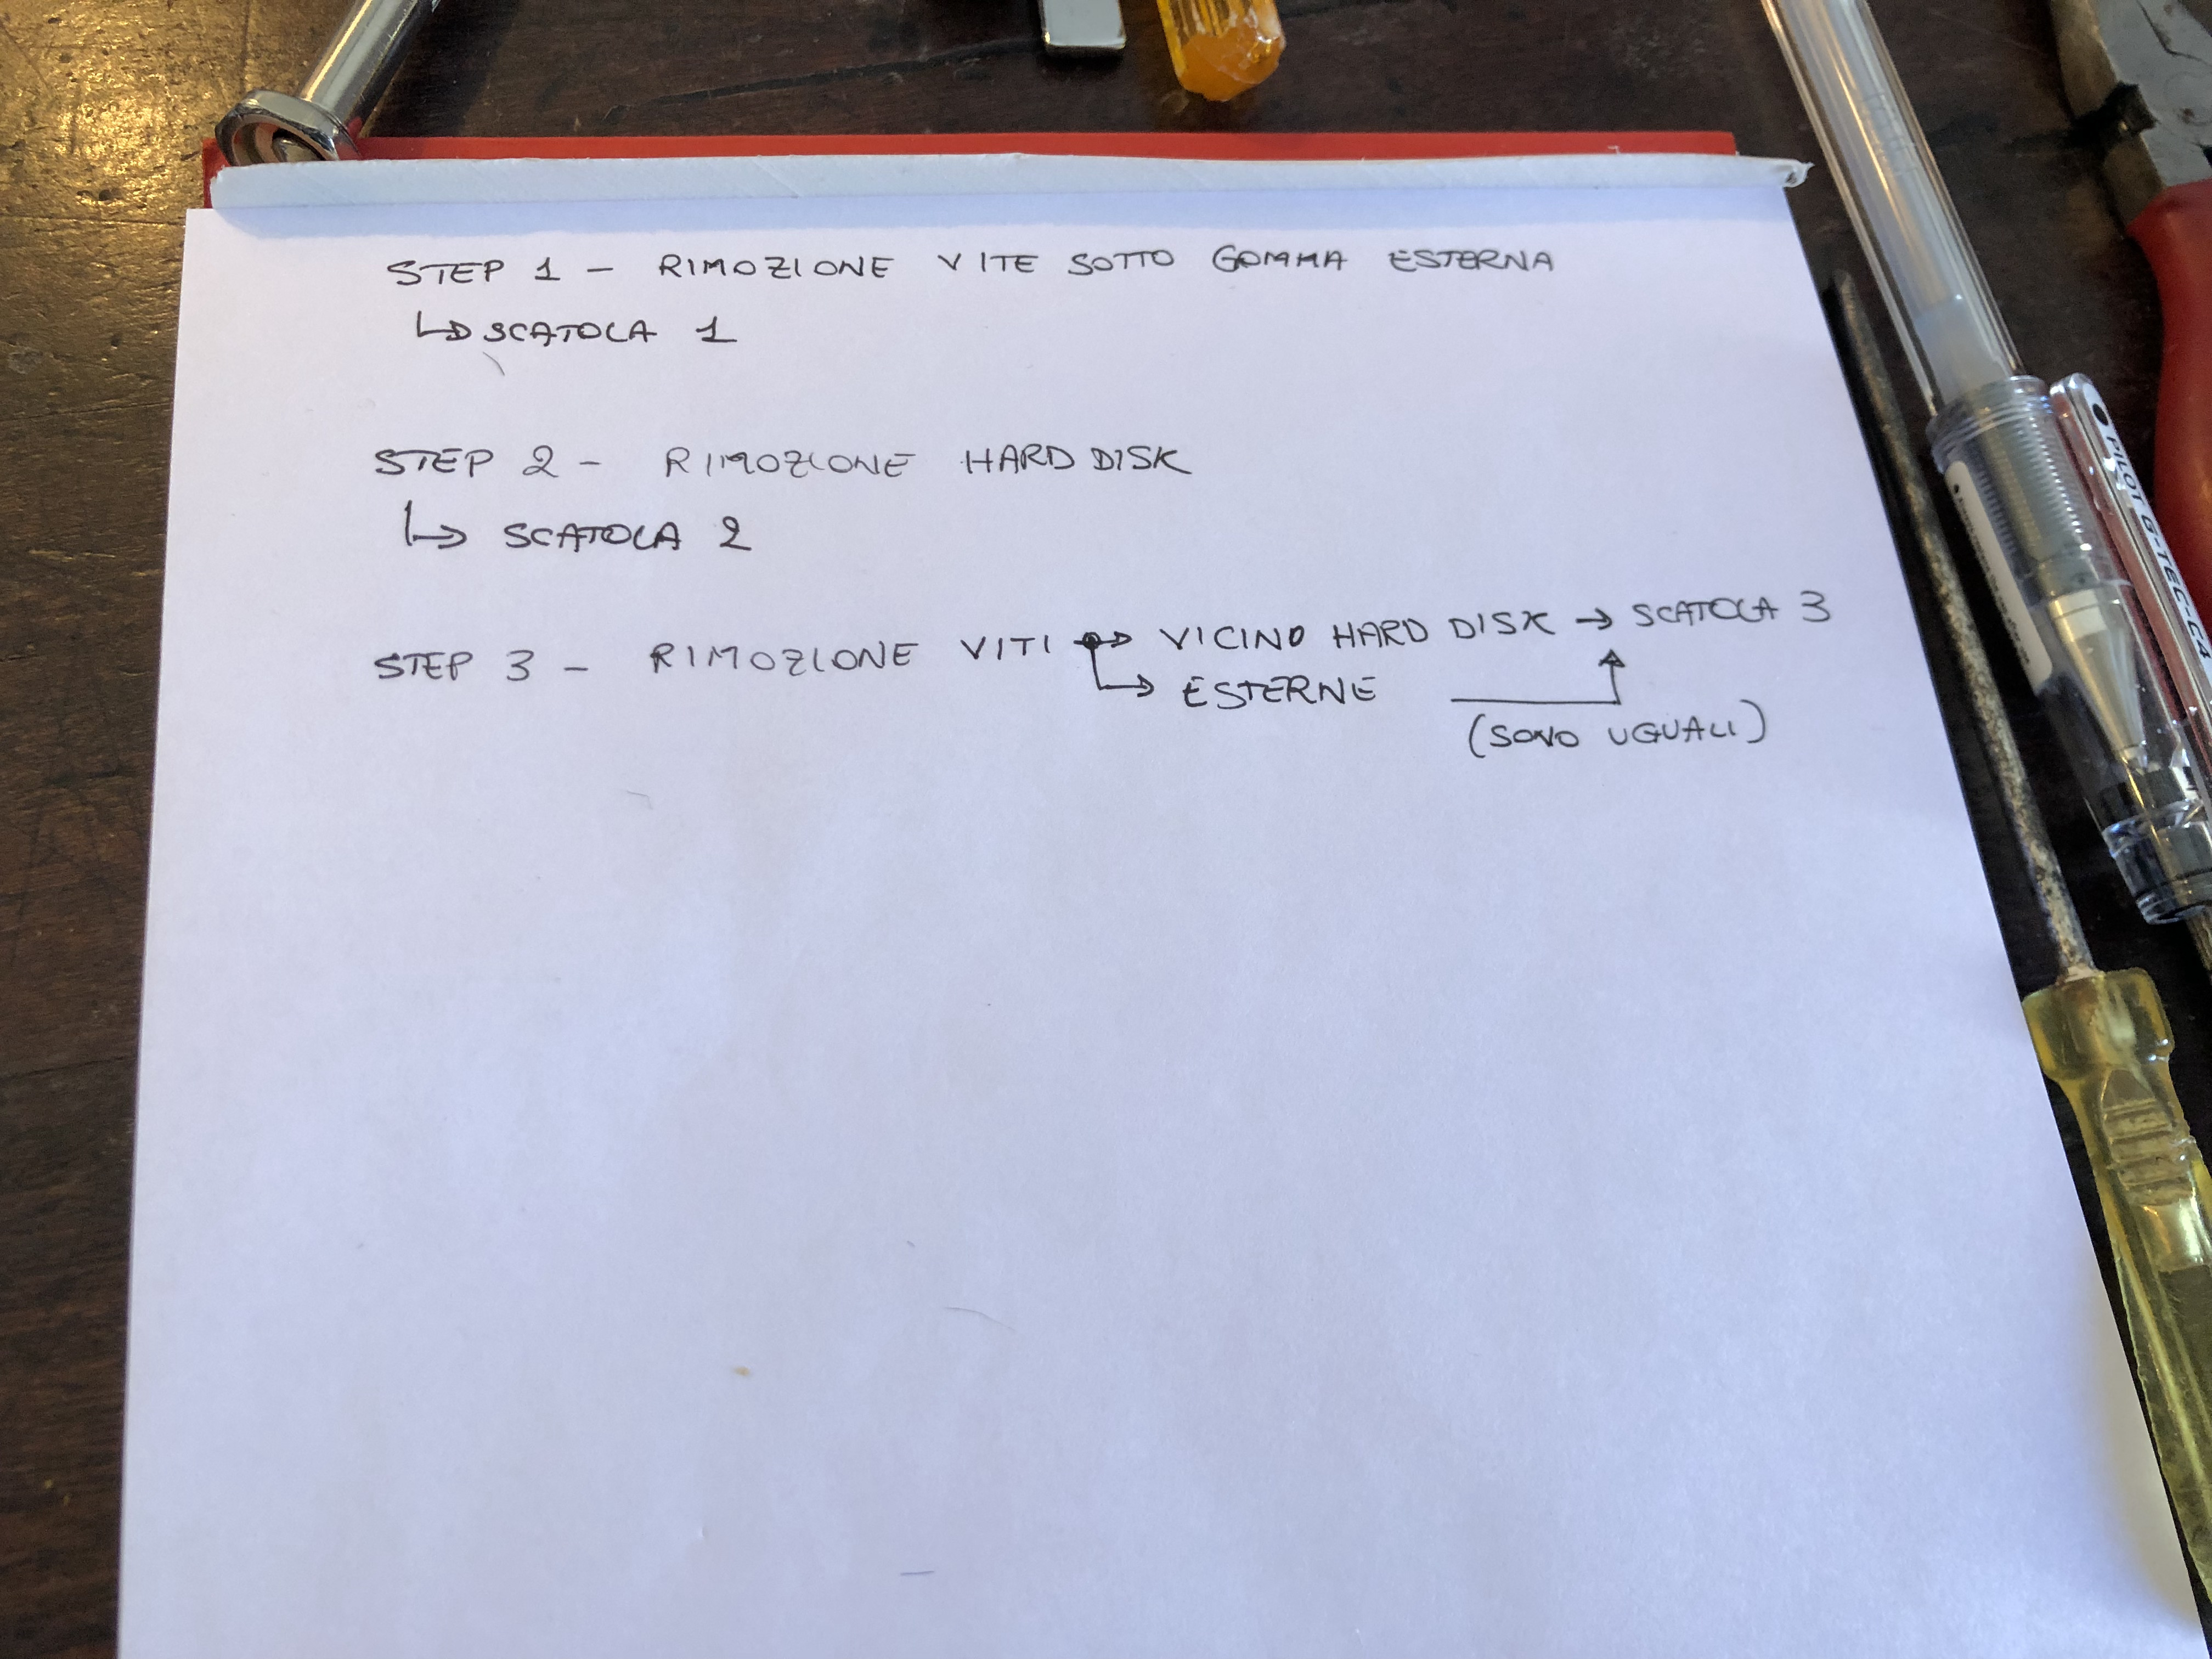 STEP 1 - RIMOZIONE VITE SOTTO GOMMA ESTERNA
↳ SCATOLA 1
STEP 2 - RIMOZIONE HARD DISK
↳ SCATOLA 2
STEP 3 - RIMOZIONE VITI → VICINO HARD DISK → SCATOLA 3
↳ ESTERNE
(SONO UGUALI)
PILOT G-TEC-C4